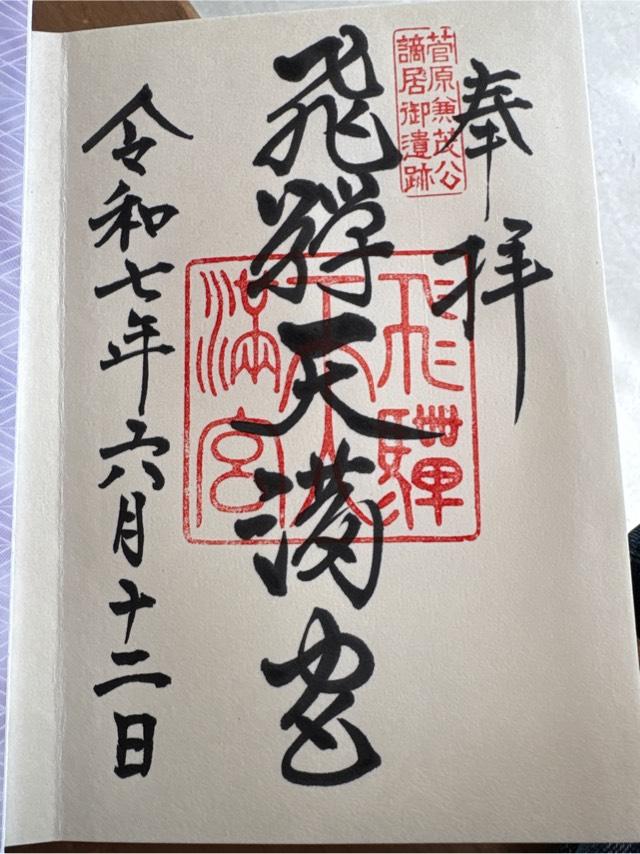 奉拝
菅原兼茂公
謫居御遺跡
飛驒天満宮
飛驒
天
満宮
令和七年六月十二日